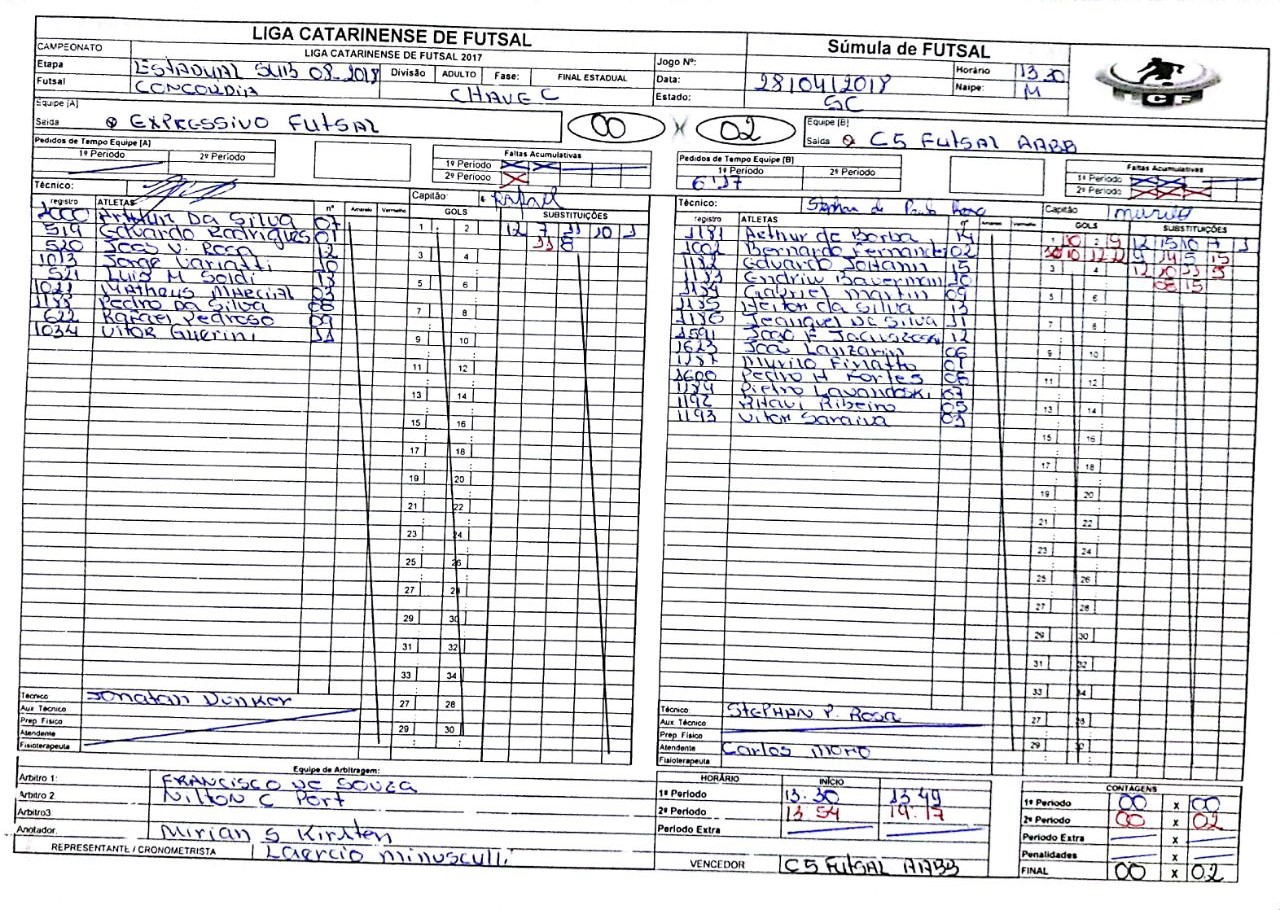 LIGA CATARINENSE DE FUTSAL
LIGA CATARINENSE DE FUTSAL 2017
CAMPEONATO
Etapa ESTADUAL SUB 08-2018 Divisão ADULTO Fase: FINAL ESTADUAL
Futsal CONCORDIA CHAVE C
Súmula de FUTSAL
Jogo Nº: Horário 13.30
Data: 28/04/2018 Naipe: M
Estado: SC
LCF
Equipe [A]
Saida EXPRESSIVO FUTSAL 00 X 02
Equipe [B]
Saida C5 FUTSAL AABB
Pedidos de Tempo Equipe [A]
1º Periodo 2º Periodo
Faltas Acumulativas
1º Periodo
2º Periodo
Pedidos de Tempo Equipe [B]
1º Periodo 2º Periodo
6'17
Faltas Acumulativas
1º Periodo
2º Periodo
Técnico: Capitão Rafael
registro ATLETAS nº Amarelo Vermelho GOLS SUBSTITUIÇÕES
Arthur Da Silva 07
519 Eduardo Rodrigues 01
520 Joao V. Rosa 12
1013 Jorge Variatti 10
521 Luis M Soldi 13
1021 Matheus Marcial 03
1133 Pedro Da Silva 08
622 Rafael Pedroso 09
1034 Vitor Guerini 11
1 2 12 7 11 10 1
11 8
3 4
5 6
7 8
9 10
11 12
13 14
15 16
17 18
19 20
21 22
23 24
25 26
27 28
29 30
31 32
33 34
27 28
29 30
Técnico Jonatan Dunker
Aux Técnico
Prep Físico
Atendente
Fisioterapeuta
Técnico: Capitão Murilo
registro ATLETAS nº Amarelo Vermelho GOLS SUBSTITUIÇÕES
1181 Arthur de Borba 14
1002 Bernardo Fernandes 02
1132 Eduardo Johann 15
1133 Andriw Baverman 10
1134 Gabriel Martin 09
1135 Heitor da Silva 13
1136 Silva 11
1591 12
1623 Joao Lanzarin 06
1137 Murilo 01
1600 Pedro H Fortes 08
1184 Pietro Lavandoski 07
1192 Rhavi Ribeiro 05
1193 Vitor Saraiva 03
1 2
3 4
5 6
7 8
9 10
11 12
13 14
15 16
17 18
19 20
21 22
23 24
25 26
27 28
29 30
31 32
33 34
27 28
29
Técnico STEPHAN P. ROSA
Aux. Técnico
Prep. Físico
Atendente Carlos Moro
Fisioterapeuta
Equipe de Arbitragem:
Arbitro 1: FRANCISCO DE SOUZA
Arbitro 2 Nilton C Port
Arbitro3
Anotador. Mirian S Kirsten
REPRESENTANTE / CRONOMETRISTA Laercio Minusculli
HORÁRIO INÍCIO
1º Periodo 13.30 13 49
2º Periodo 13 54 14.17
Periodo Extra
VENCEDOR C5 Futsal AABB
CONTAGENS
1º Periodo 00 x 00
2º Periodo 00 x 02
Periodo Extra x
Penalidades x
FINAL 00 x 02